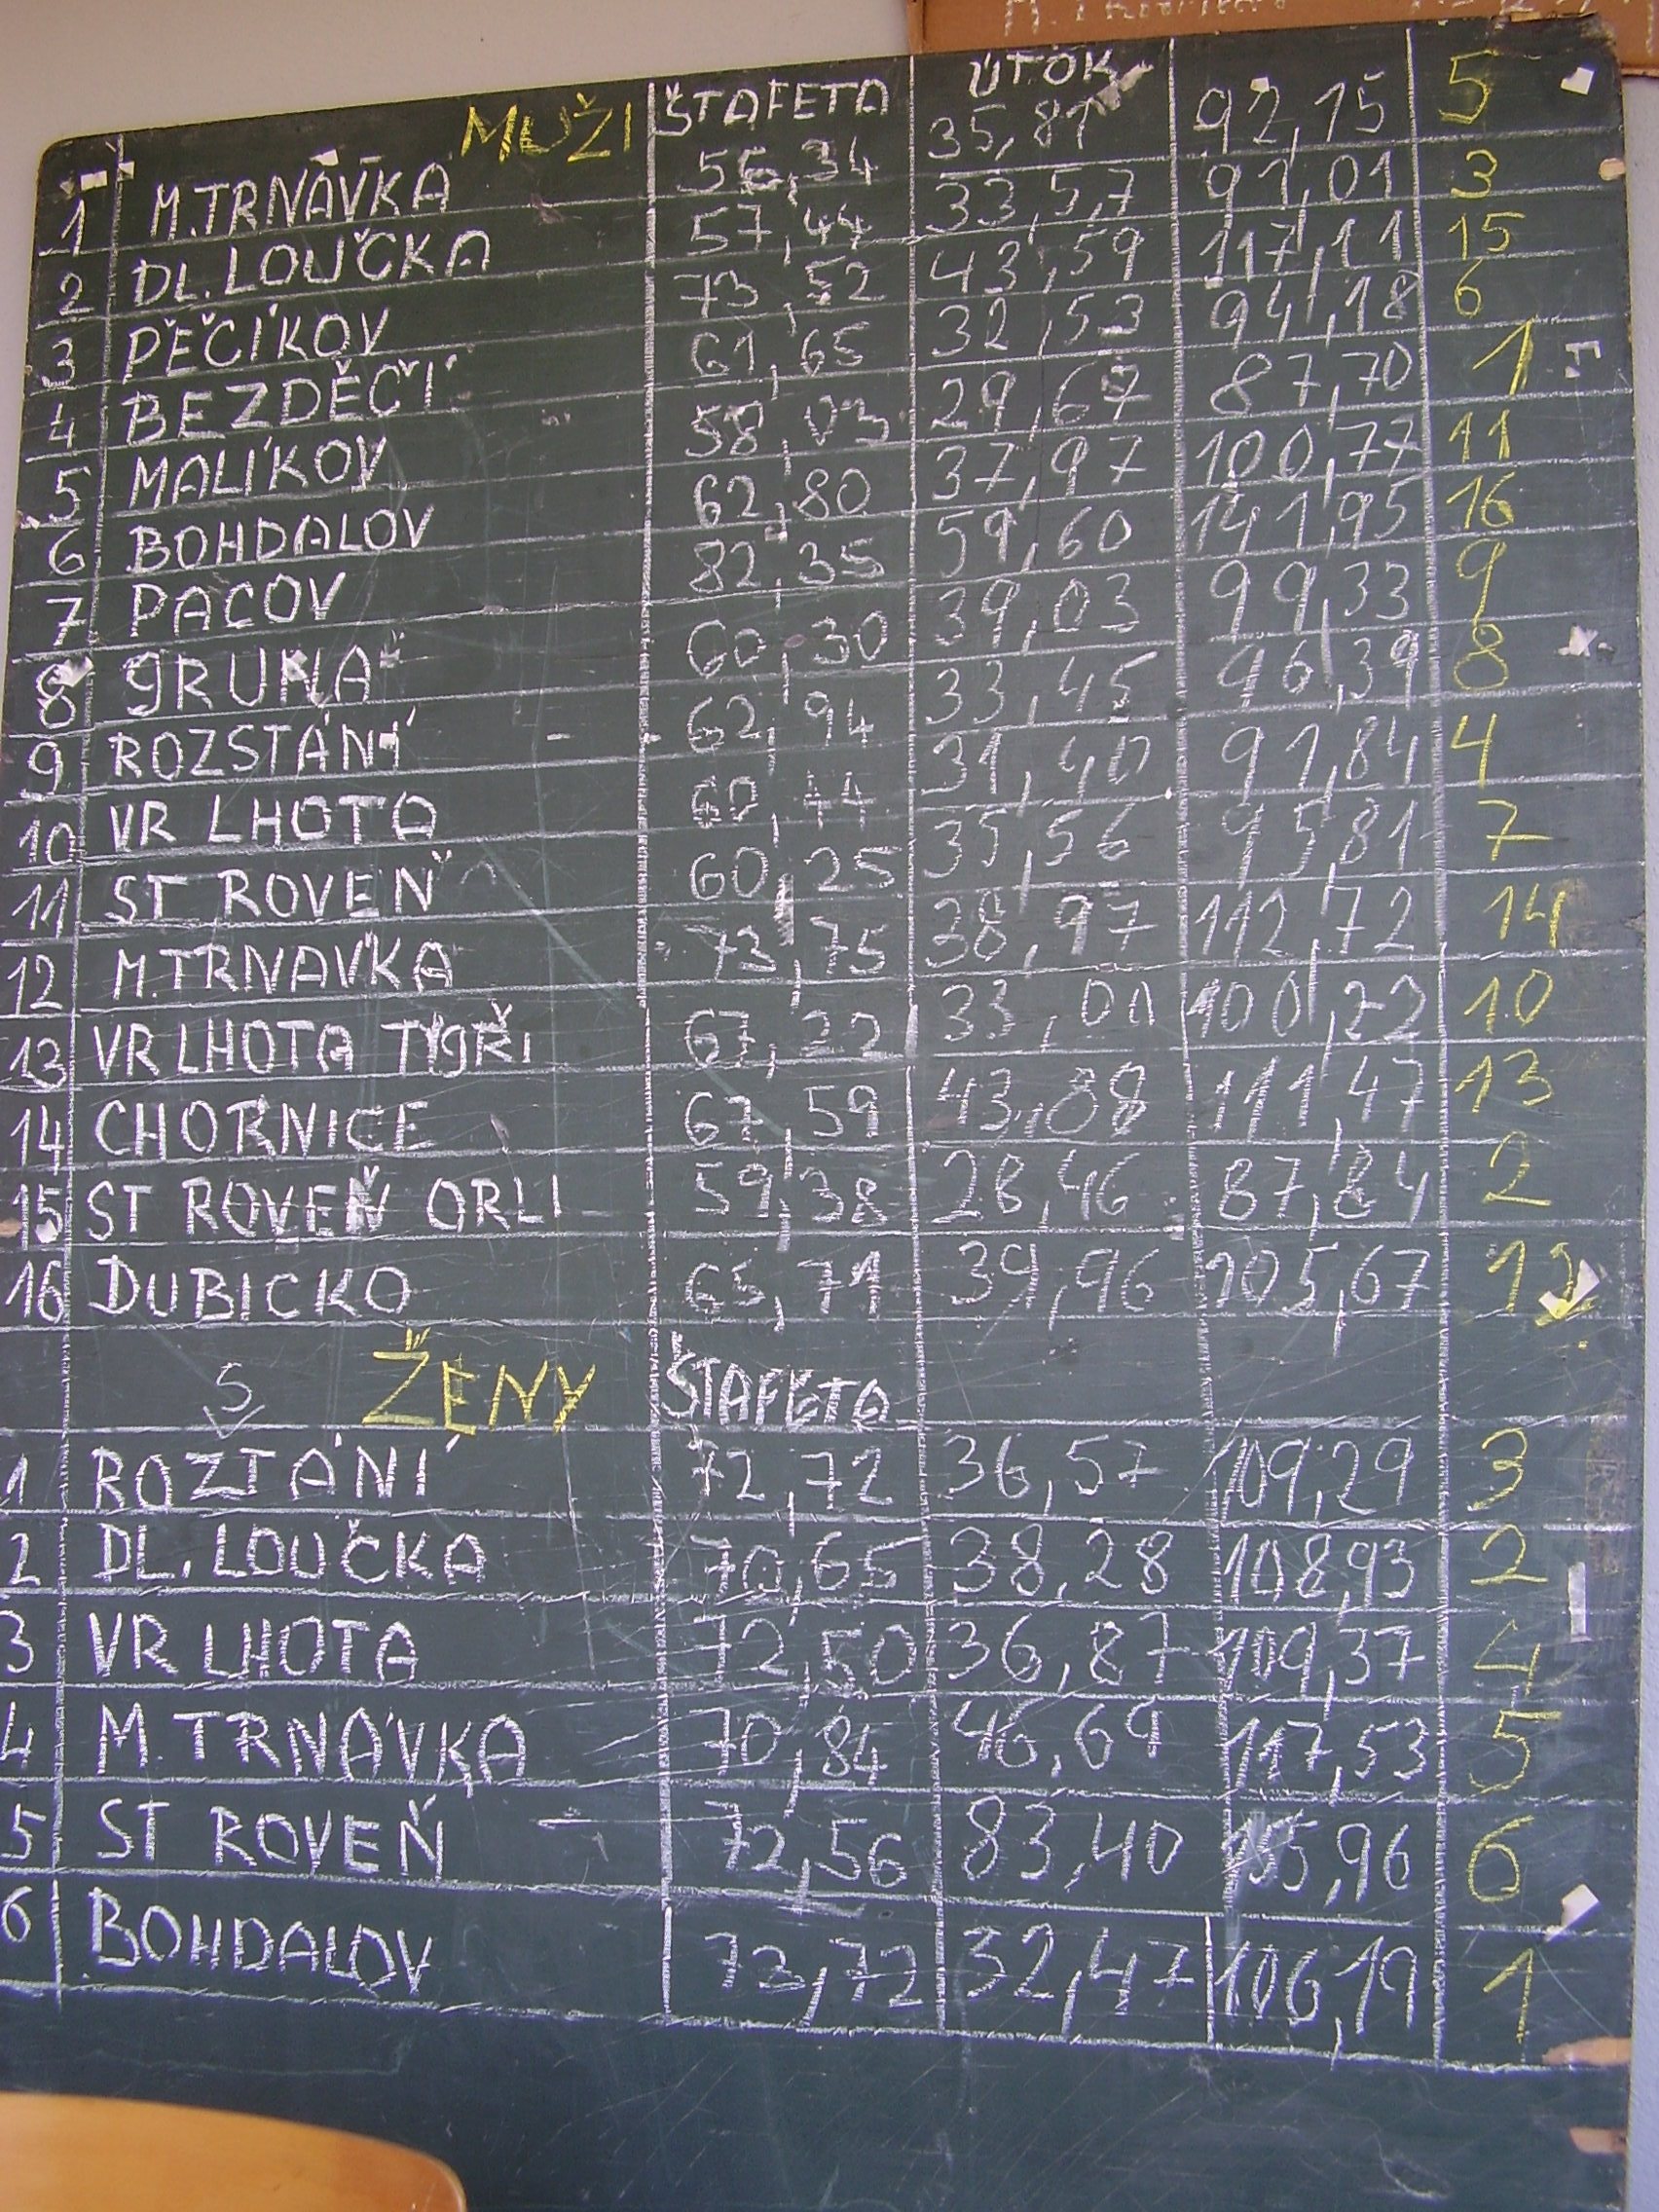 MUŽI ŠTAFETA ÚTOK
1 M.TRNÁVKA 56,34 35,81 92,15 5
2 DL.LOUČKA 57,44 33,57 91,01 3
3 PĚČÍKOV 73,52 43,59 117,11 15
4 BEZDĚČÍ 61,65 32,53 94,18 6
5 MALÍKOV 58,03 29,67 87,70 1
6 BOHDALOV 62,80 37,97 100,77 11
7 PACOV 82,35 59,60 141,95 16
8 GRUNA 60,30 39,03 99,33 9
9 ROZSTÁNÍ 62,94 33,45 96,39 8
10 VR LHOTA 60,44 31,40 91,84 4
11 ST ROVEŇ 60,25 35,56 95,81 7
12 M.TRNAVKA 73,75 38,97 112,72 14
13 VR LHOTA TYGŘI 67,22 33,00 100,22 10
14 CHORNICE 67,59 43,88 111,47 13
15 ST ROVEŇ ORLI 59,38 28,46 87,84 2
16 DUBICKO 65,71 39,96 105,67 12
5 ŽENY ŠTAFETA
1 ROZTÁNÍ 72,72 36,57 109,29 3
2 DL. LOUČKA 70,65 38,28 108,93 2
3 VR LHOTA 72,50 36,87 109,37 4
4 M.TRNÁVKA 70,84 46,69 117,53 5
5 ST ROVEŇ 72,56 83,40 155,96 6
6 BOHDALOV 73,72 32,47 106,19 1